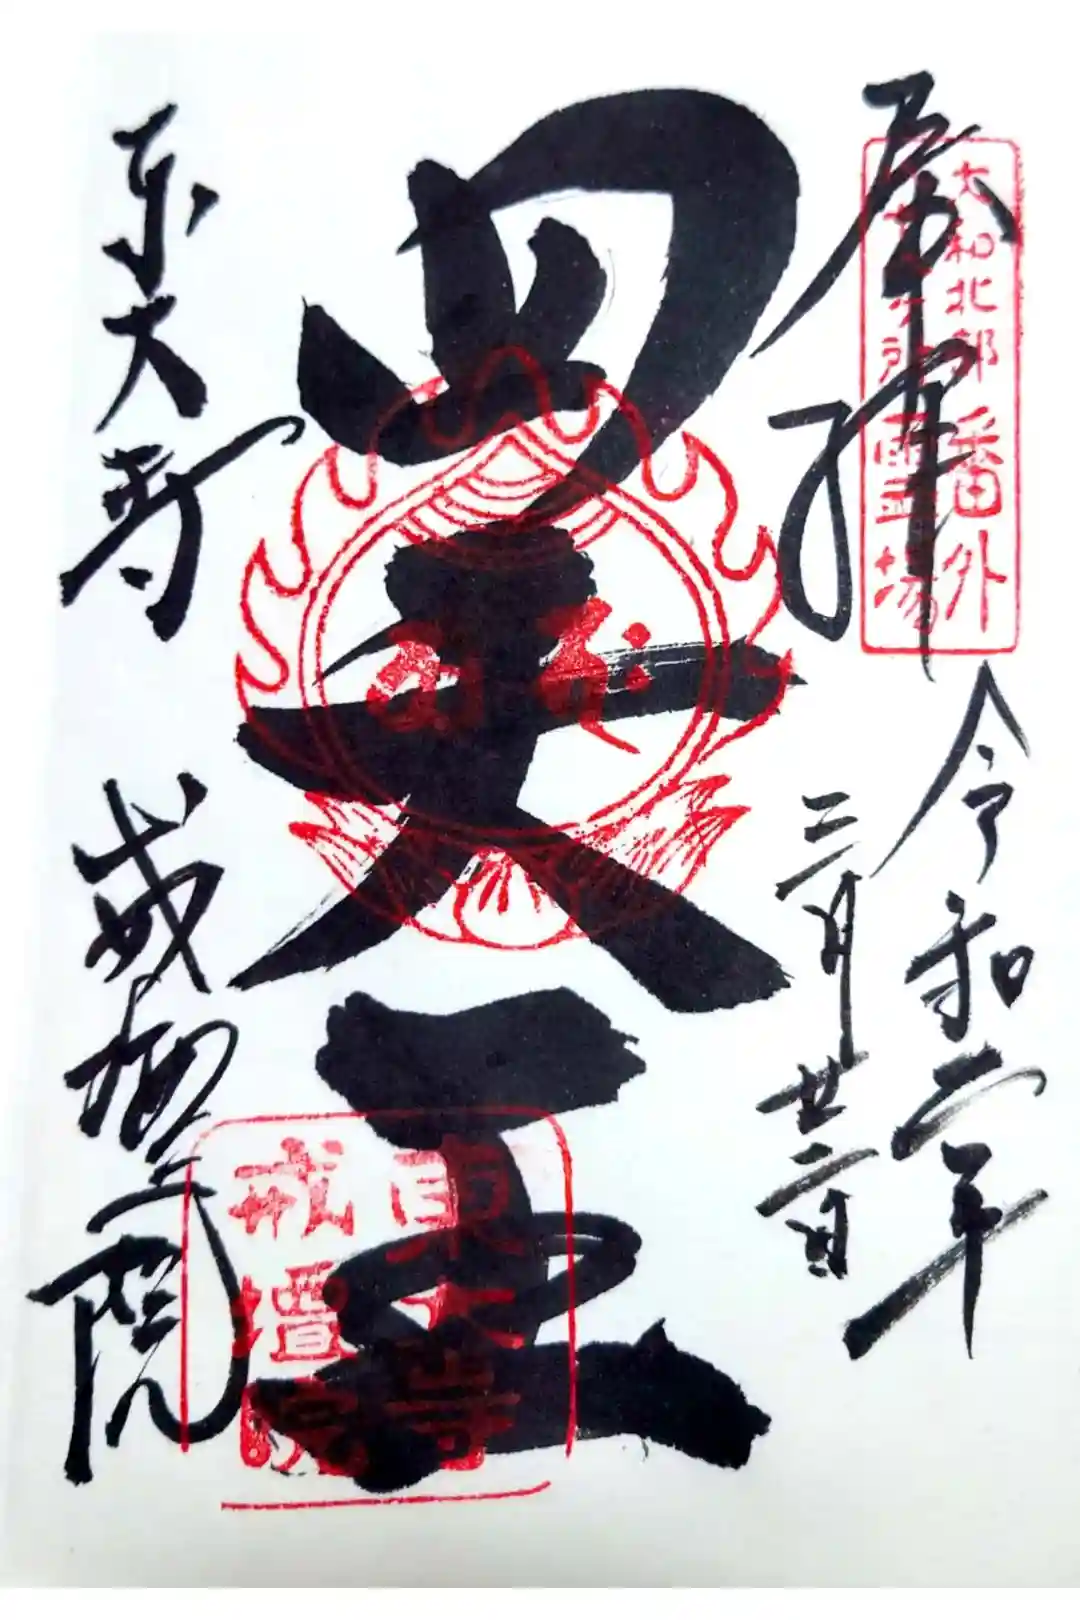 奉拝
大和北部番外
八十八ヶ所霊場
令和二年
三月廿二日
四天王
東大寺
戒壇院
東大寺
戒壇院